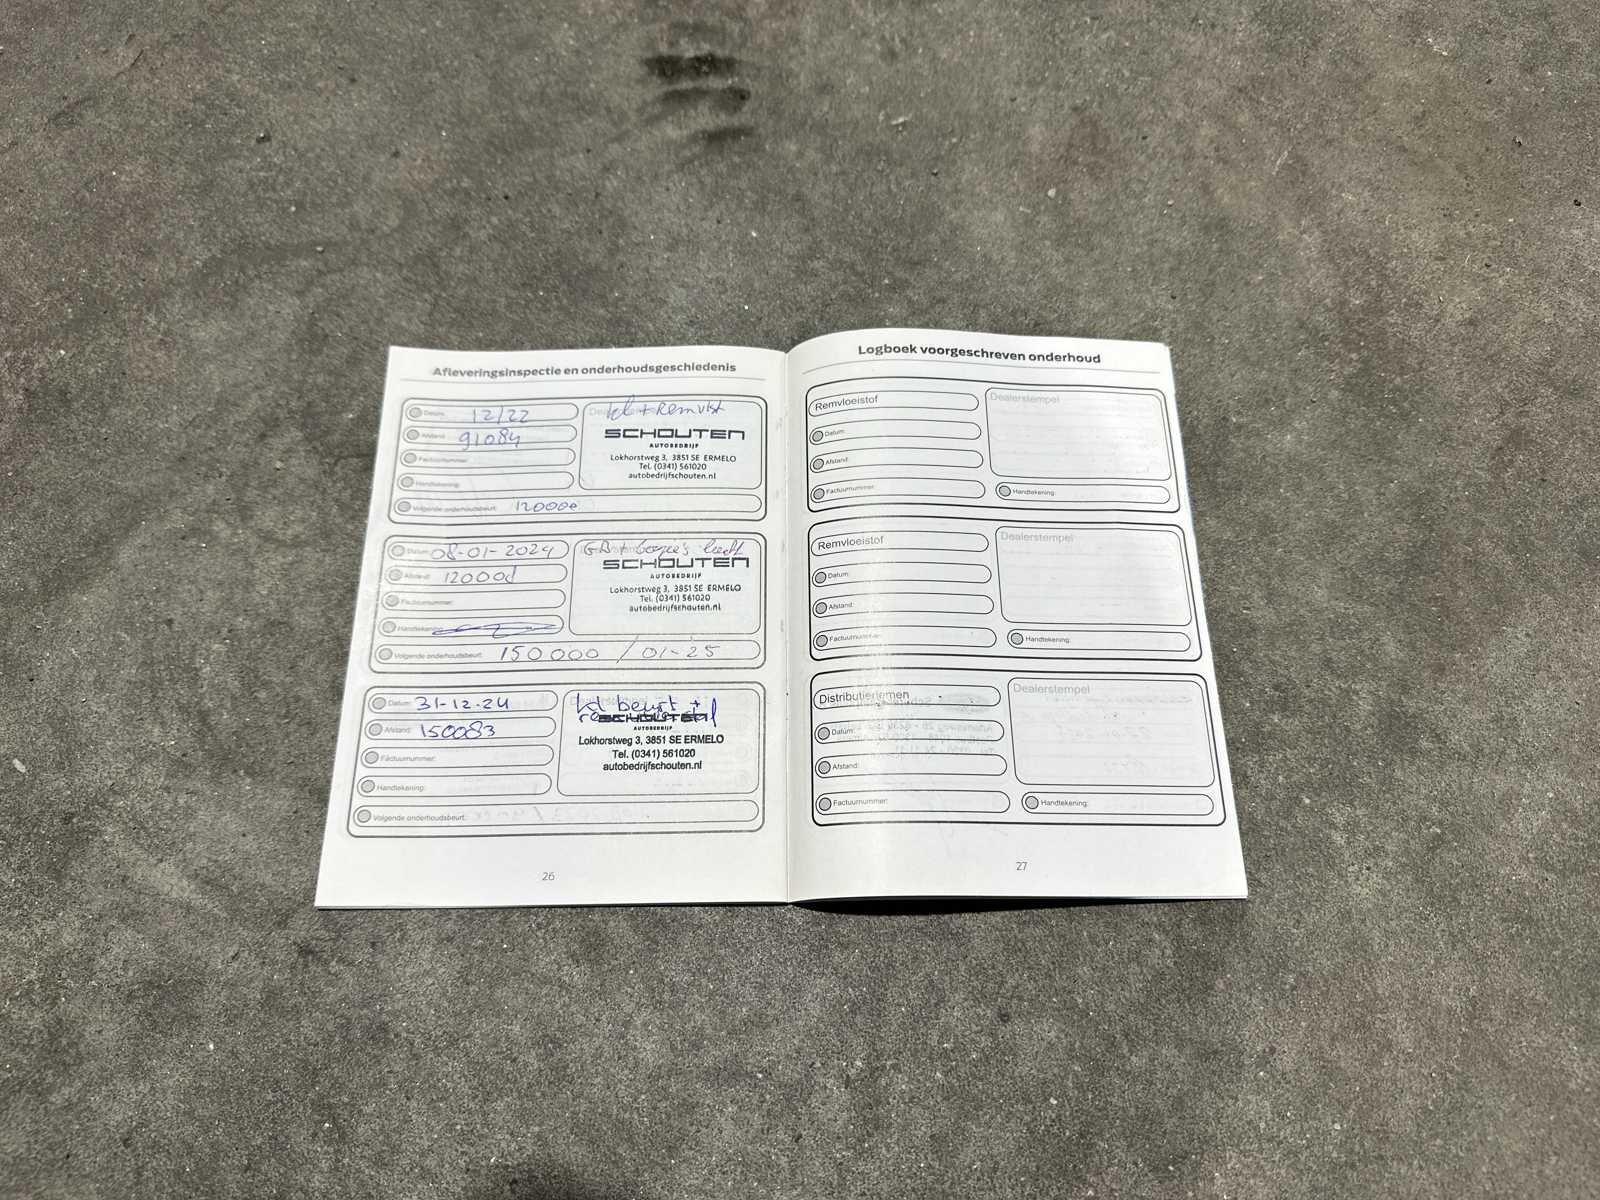 Afleveringsinspectie en onderhoudsgeschiedenis
Datum: 12/22
Afstand: 91084
Factuurnummer:
Handtekening:
Volgende onderhoudsbeurt: 120000
Dealerstempel
kl + Remvlst
SCHOUTEN
AUTOBEDRIJF
Lokhorstweg 3, 3851 SE ERMELO
Tel. (0341) 561020
autobedrijfschouten.nl
Datum: 08-01-2024
Afstand: 12000
Factuurnummer:
Handtekening:
Volgende onderhoudsbeurt: 150000 / 01-25
GB + bougie's
SCHOUTEN
AUTOBEDRIJF
Lokhorstweg 3, 3851 SE ERMELO
Tel. (0341) 561020
autobedrijfschouten.nl
Datum: 31-12-24
Afstand: 150083
Factuurnummer:
Handtekening:
Volgende onderhoudsbeurt:
beurt +
SCHOUTEN
AUTOBEDRIJF
Lokhorstweg 3, 3851 SE ERMELO
Tel. (0341) 561020
autobedrijfschouten.nl
26
Logboek voorgeschreven onderhoud
Remvloeistof
Datum:
Afstand:
Factuurnummer:
Dealerstempel
Handtekening:
Remvloeistof
Datum:
Afstand:
Factuurnummer:
Dealerstempel
Handtekening:
Distributieriemen
Datum:
Afstand:
Factuurnummer:
Dealerstempel
Handtekening:
27